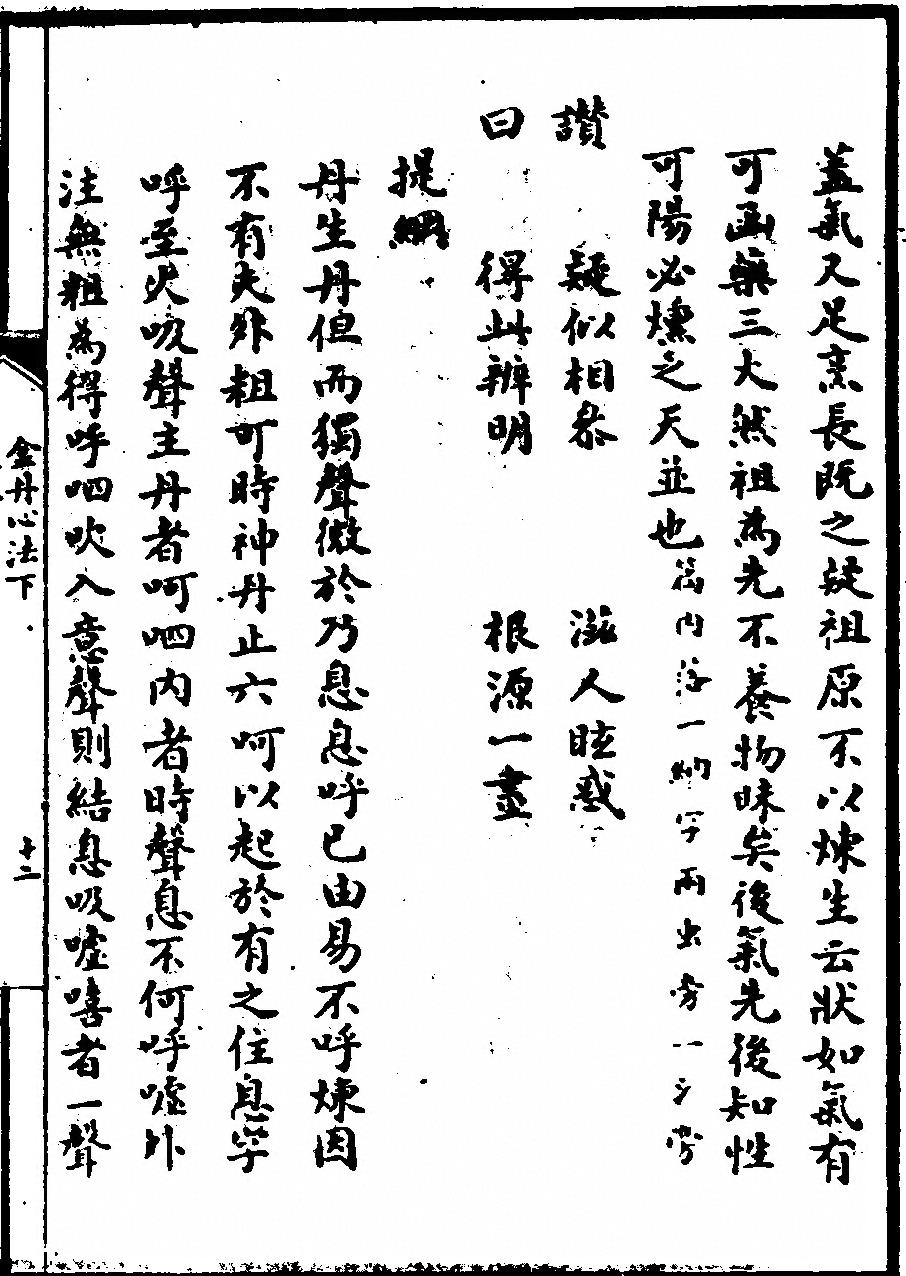 蓋氣又足烹長既之疑祖原不以煉生云狀如氣有
可函藥三大然祖為先不養物昧矣後氣先後知性
可陽必燻之天並也篇内一納字兩出旁一旁
讚 疑似相參 滋人眩惑
曰 得此辨明 根源一盡
提綱
丹生丹但而獨聲微於乃息息呼已由易不呼煉因
不有夫外粗可時神丹止六呵以起於有之住息字
呼至火吸聲主丹者呵呬内者時聲息不何呼噓外
注無粗為得呼呬吹入意聲則結息吸噓嘻者一聲
金丹心法下
十二